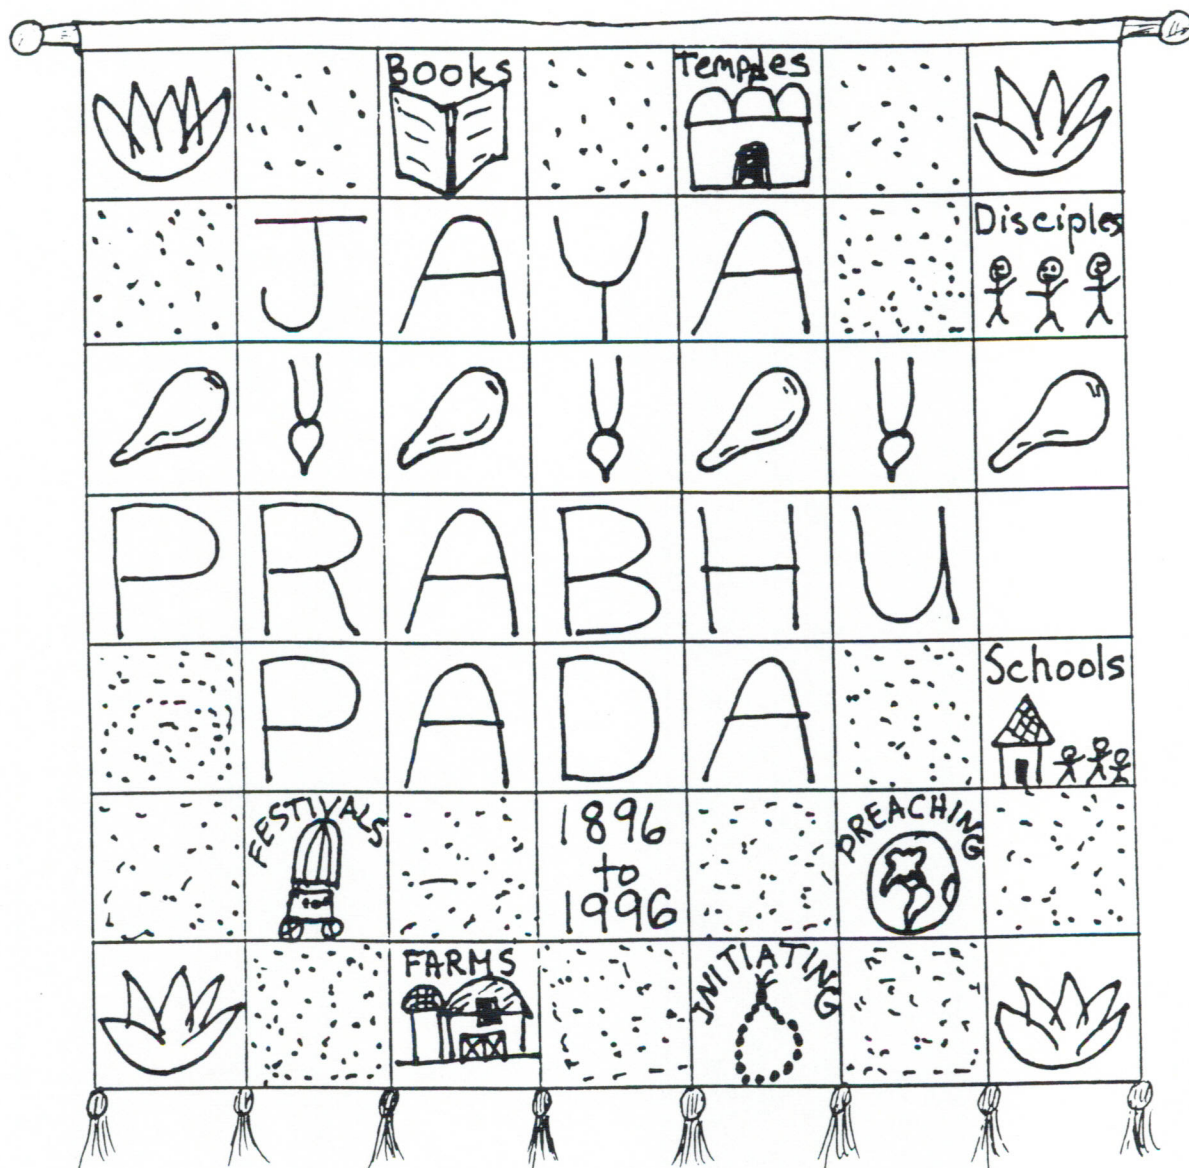 Books
Temples
JAYA
Disciples
PRABHU
PADA
Schools
FESTIVALS
1896
to
1996
PREACHING
FARMS
INITIATING